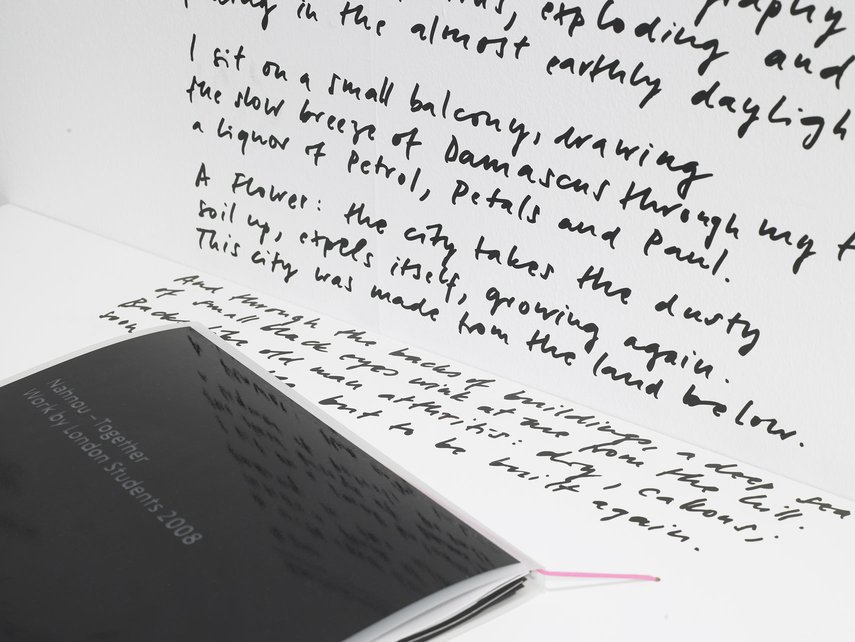 exploding and
in the almost earthly dayligh
I sit on a small balcony, drawing
the slow breeze of Damascus through my
a liquor of Petrol, Petals and Paul.
A Flower: the city takes the dusty
soil up, expels itself, growing again.
This city was made from the land below.
And through the backs of buildings, a deep sea
of small black eyes wink at me from the hill.
Back like old man arthritis: dry,
soon but to be built again.
Nahnou - Together
Work by London Students 2008